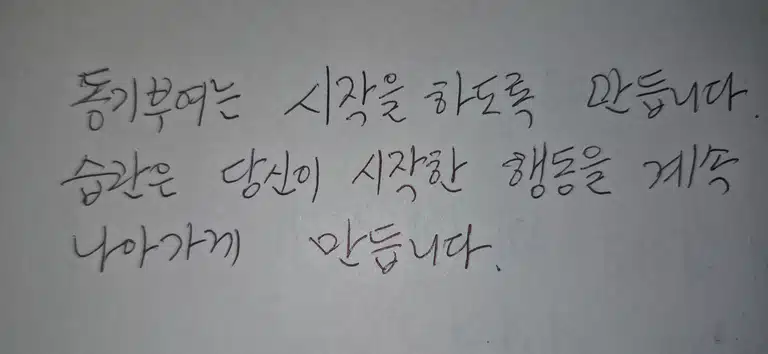 동기부여는 시작을 하도록 만듭니다.
습관은 당신이 시작한 행동을 계속
나아가게 만듭니다.